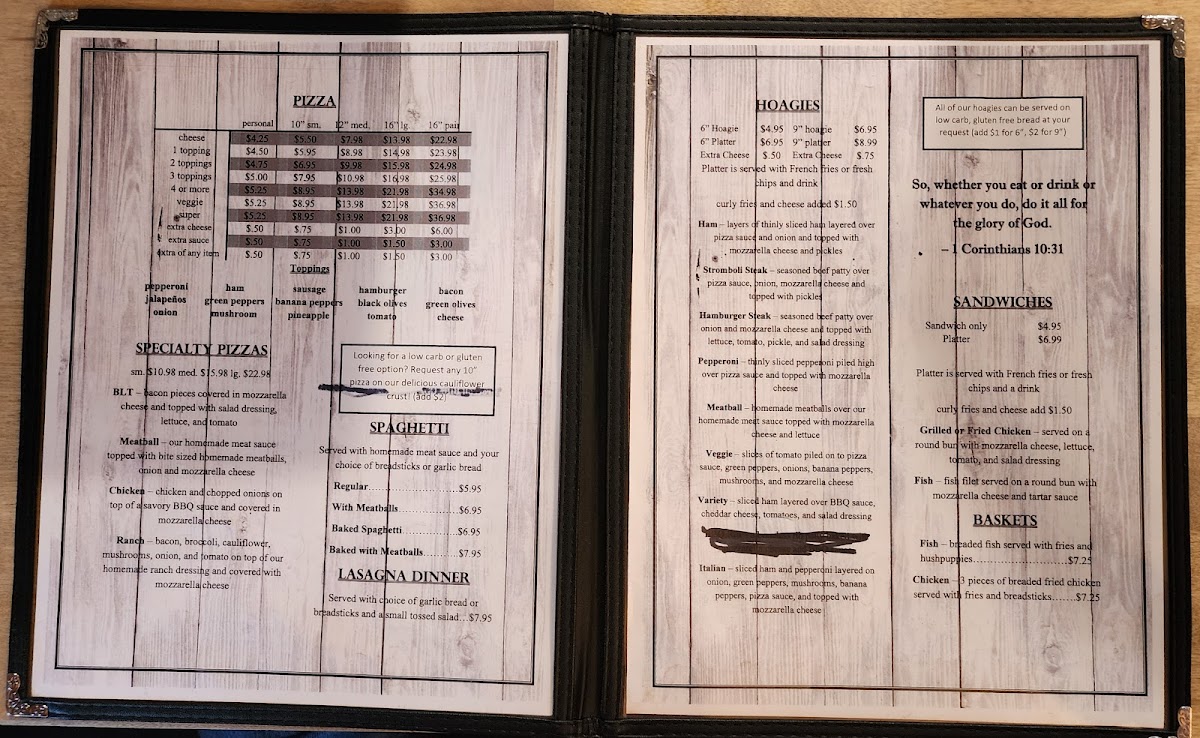 PIZZA
personal 10" sm. 12" med. 16" lg. 16" pair
cheese $4.25 $5.50 $7.98 $13.98 $22.98
1 topping $4.50 $5.95 $8.98 $14.98 $23.98
2 toppings $4.75 $6.95 $9.98 $15.98 $24.98
3 toppings $5.00 $7.95 $10.98 $16.98 $25.98
4 or more $5.25 $8.95 $13.98 $21.98 $34.98
veggie $5.25 $8.95 $13.98 $21.98 $36.98
super $5.25 $8.95 $13.98 $21.98 $36.98
extra cheese $.50 $.75 $1.00 $3.00 $6.00
extra sauce $.50 $.75 $1.00 $1.50 $3.00
extra of any item $.50 $.75 $1.00 $1.50 $3.00
Toppings
pepperoni ham sausage hamburger bacon
jalapeños green peppers banana peppers black olives green olives
onion mushroom pineapple tomato cheese
SPECIALTY PIZZAS
sm. $10.98 med. $15.98 lg. $22.98
BLT – bacon pieces covered in mozzarella
cheese and topped with salad dressing,
lettuce, and tomato
Meatball – our homemade meat sauce
topped with bite sized homemade meatballs,
onion and mozzarella cheese
Chicken – chicken and chopped onions on
top of a savory BBQ sauce and covered in
mozzarella cheese
Ranch – bacon, broccoli, cauliflower,
mushrooms, onion, and tomato on top of our
homemade ranch dressing and covered with
mozzarella cheese
Looking for a low carb or gluten
free option? Request any 10"
pizza on our delicious cauliflower
crust! (add $2)
SPAGHETTI
Served with homemade meat sauce and your
choice of breadsticks or garlic bread
Regular........................$5.95
With Meatballs...............$6.95
Baked Spaghetti..............$6.95
Baked with Meatballs.........$7.95
LASAGNA DINNER
Served with choice of garlic bread or
breadsticks and a small tossed salad...$7.95
HOAGIES
6" Hoagie $4.95 9" hoagie $6.95
6" Platter $6.95 9" platter $8.99
Extra Cheese $.50 Extra Cheese $.75
Platter is served with French fries or fresh
chips and drink
curly fries and cheese added $1.50
Ham – layers of thinly sliced ham layered over
pizza sauce and onion and topped with
mozzarella cheese and pickles
Stromboli Steak – seasoned beef patty over
pizza sauce, onion, mozzarella cheese and
topped with pickles
Hamburger Steak – seasoned beef patty over
onion and mozzarella cheese and topped with
lettuce, tomato, pickle, and salad dressing
Pepperoni – thinly sliced pepperoni piled high
over pizza sauce and topped with mozzarella
cheese
Meatball – homemade meatballs over our
homemade meat sauce topped with mozzarella
cheese and lettuce
Veggie – slices of tomato piled on to pizza
sauce, green peppers, onions, banana peppers,
mushrooms, and mozzarella cheese
Variety – sliced ham layered over BBQ sauce,
cheddar cheese, tomatoes, and salad dressing
Italian – sliced ham and pepperoni layered on
onion, green peppers, mushrooms, banana
peppers, pizza sauce, and topped with
mozzarella cheese
All of our hoagies can be served on
low carb, gluten free bread at your
request (add $1 for 6", $2 for 9")
So, whether you eat or drink or
whatever you do, do it all for
the glory of God.
– 1 Corinthians 10:31
SANDWICHES
Sandwich only $4.95
Platter $6.99
Platter is served with French fries or fresh
chips and a drink
curly fries and cheese add $1.50
Grilled or Fried Chicken – served on a
round bun with mozzarella cheese, lettuce,
tomato, and salad dressing
Fish – fish filet served on a round bun with
mozzarella cheese and tartar sauce
BASKETS
Fish – breaded fish served with fries and
hushpuppies...........................$7.25
Chicken – 3 pieces of breaded fried chicken
served with fries and breadsticks.......$7.25